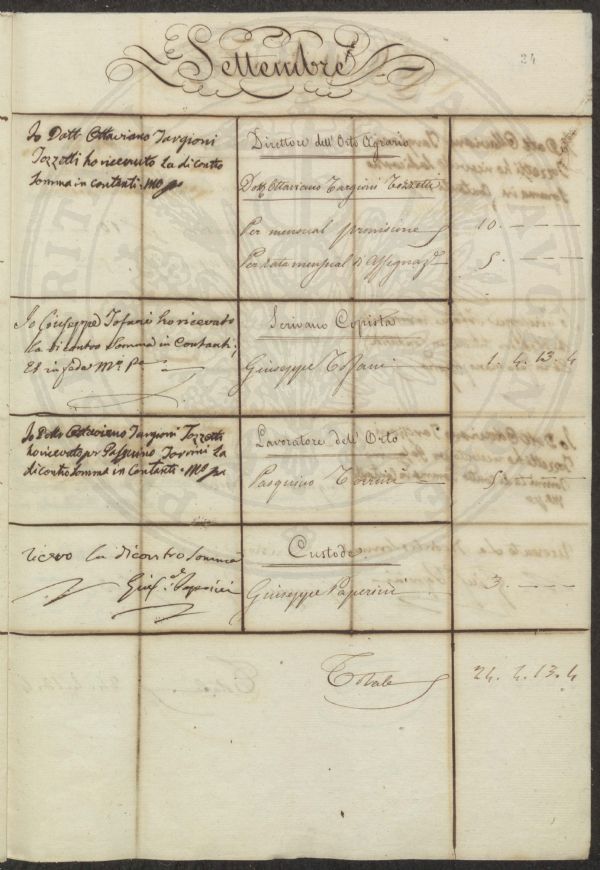 24
Settembre
Io Dott. Ottaviano Targioni
Tozzetti ho ricevuto la di contro
somma in contanti. Mo pa
Direttore dell'Orto Agrario
Dott. Ottaviano Targioni Tozzetti
Per mensual provisione 10. — — —
Per rata mensual d'Assegnaz.e 5. — — —
Io Giuseppe Tofani ho ricevuto
la di contro Somma in Contanti;
Et in fede Mo. pa
Scrivano Copista
Giuseppe Tofani 1. 4. 13. 4
Io Dott. Ottaviano Targioni Tozzetti
ho ricevuto per Pasquino Torrini la
di contro somma in Contanti. Mo pa
Lavoratore dell'Orto
Pasquino Torrini 5. — — —
ricevo la di contro somma
Gius.e Paperini
Custode
Giuseppe Paperini 3. — — —
Totale 24. 4. 13. 4